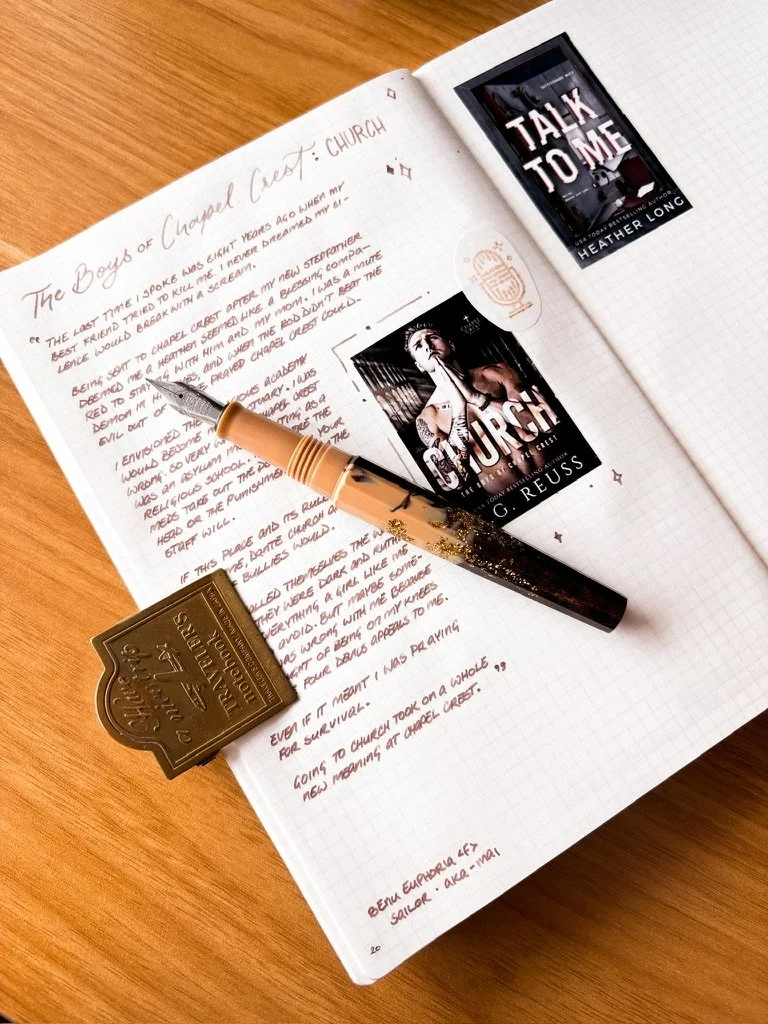 The Boys of Chapel Crest: CHURCH
" THE LAST TIME I SPOKE WAS EIGHT YEARS AGO WHEN MY
BEST FRIEND TRIED TO KILL ME. I NEVER DREAMED MY SI-
LENCE WOULD BREAK WITH A SCREAM.
BEING SENT TO CHAPEL CREST AFTER MY NEW STEPFATHER
DEEMED ME A HEATHEN SEEMED LIKE A BLESSING COMPA-
RED TO STAYING WITH HIM AND MY MOM. I WAS A MUTE
DEMON IN AND WHEN THE ROD DIDN'T BEAT THE
EVIL OUT OF PRAYED CHAPEL CREST COULD.
I ENVISIONED ACADEMY
WOULD BECOME I WAS
WRONG. SO VERY CHAPEL CREST
WAS AN ASYLUM AS A
RELIGIOUS SCHOOL. THE
MEDS TAKE OUT THE YOUR
HEAD OR THE PUNISHMENT THE
STAFF WILL.
IF THIS PLACE AND ITS
ME, DANTE CHURCH
BULLIES WOULD.
THEMSELVES THE
THEY WERE DARK AND
EVERYTHING A GIRL LIKE ME
AVOID. BUT MAYBE SOME-
WAS WRONG WITH ME BECAUSE
OF BEING ON MY KNEES
FOUR DEVILS APPEALS TO ME.
EVEN IF IT MEANT I WAS PRAYING
FOR SURVIVAL.
GOING TO CHURCH TOOK ON A WHOLE
NEW MEANING AT CHAPEL CREST. "
BENU EUPHORIA <F>
SAILOR · AKA-MAI
20
CHURCH
THE BOYS OF CHAPEL CREST
USA TODAY BESTSELLING AUTHOR
G. REUSS
TALK
TO ME
USA TODAY BESTSELLING AUTHOR
HEATHER LONG
Have
a nice trip
TRAVELER'S
notebook
TRAVELER'S COMPANY MADE IN JAPAN